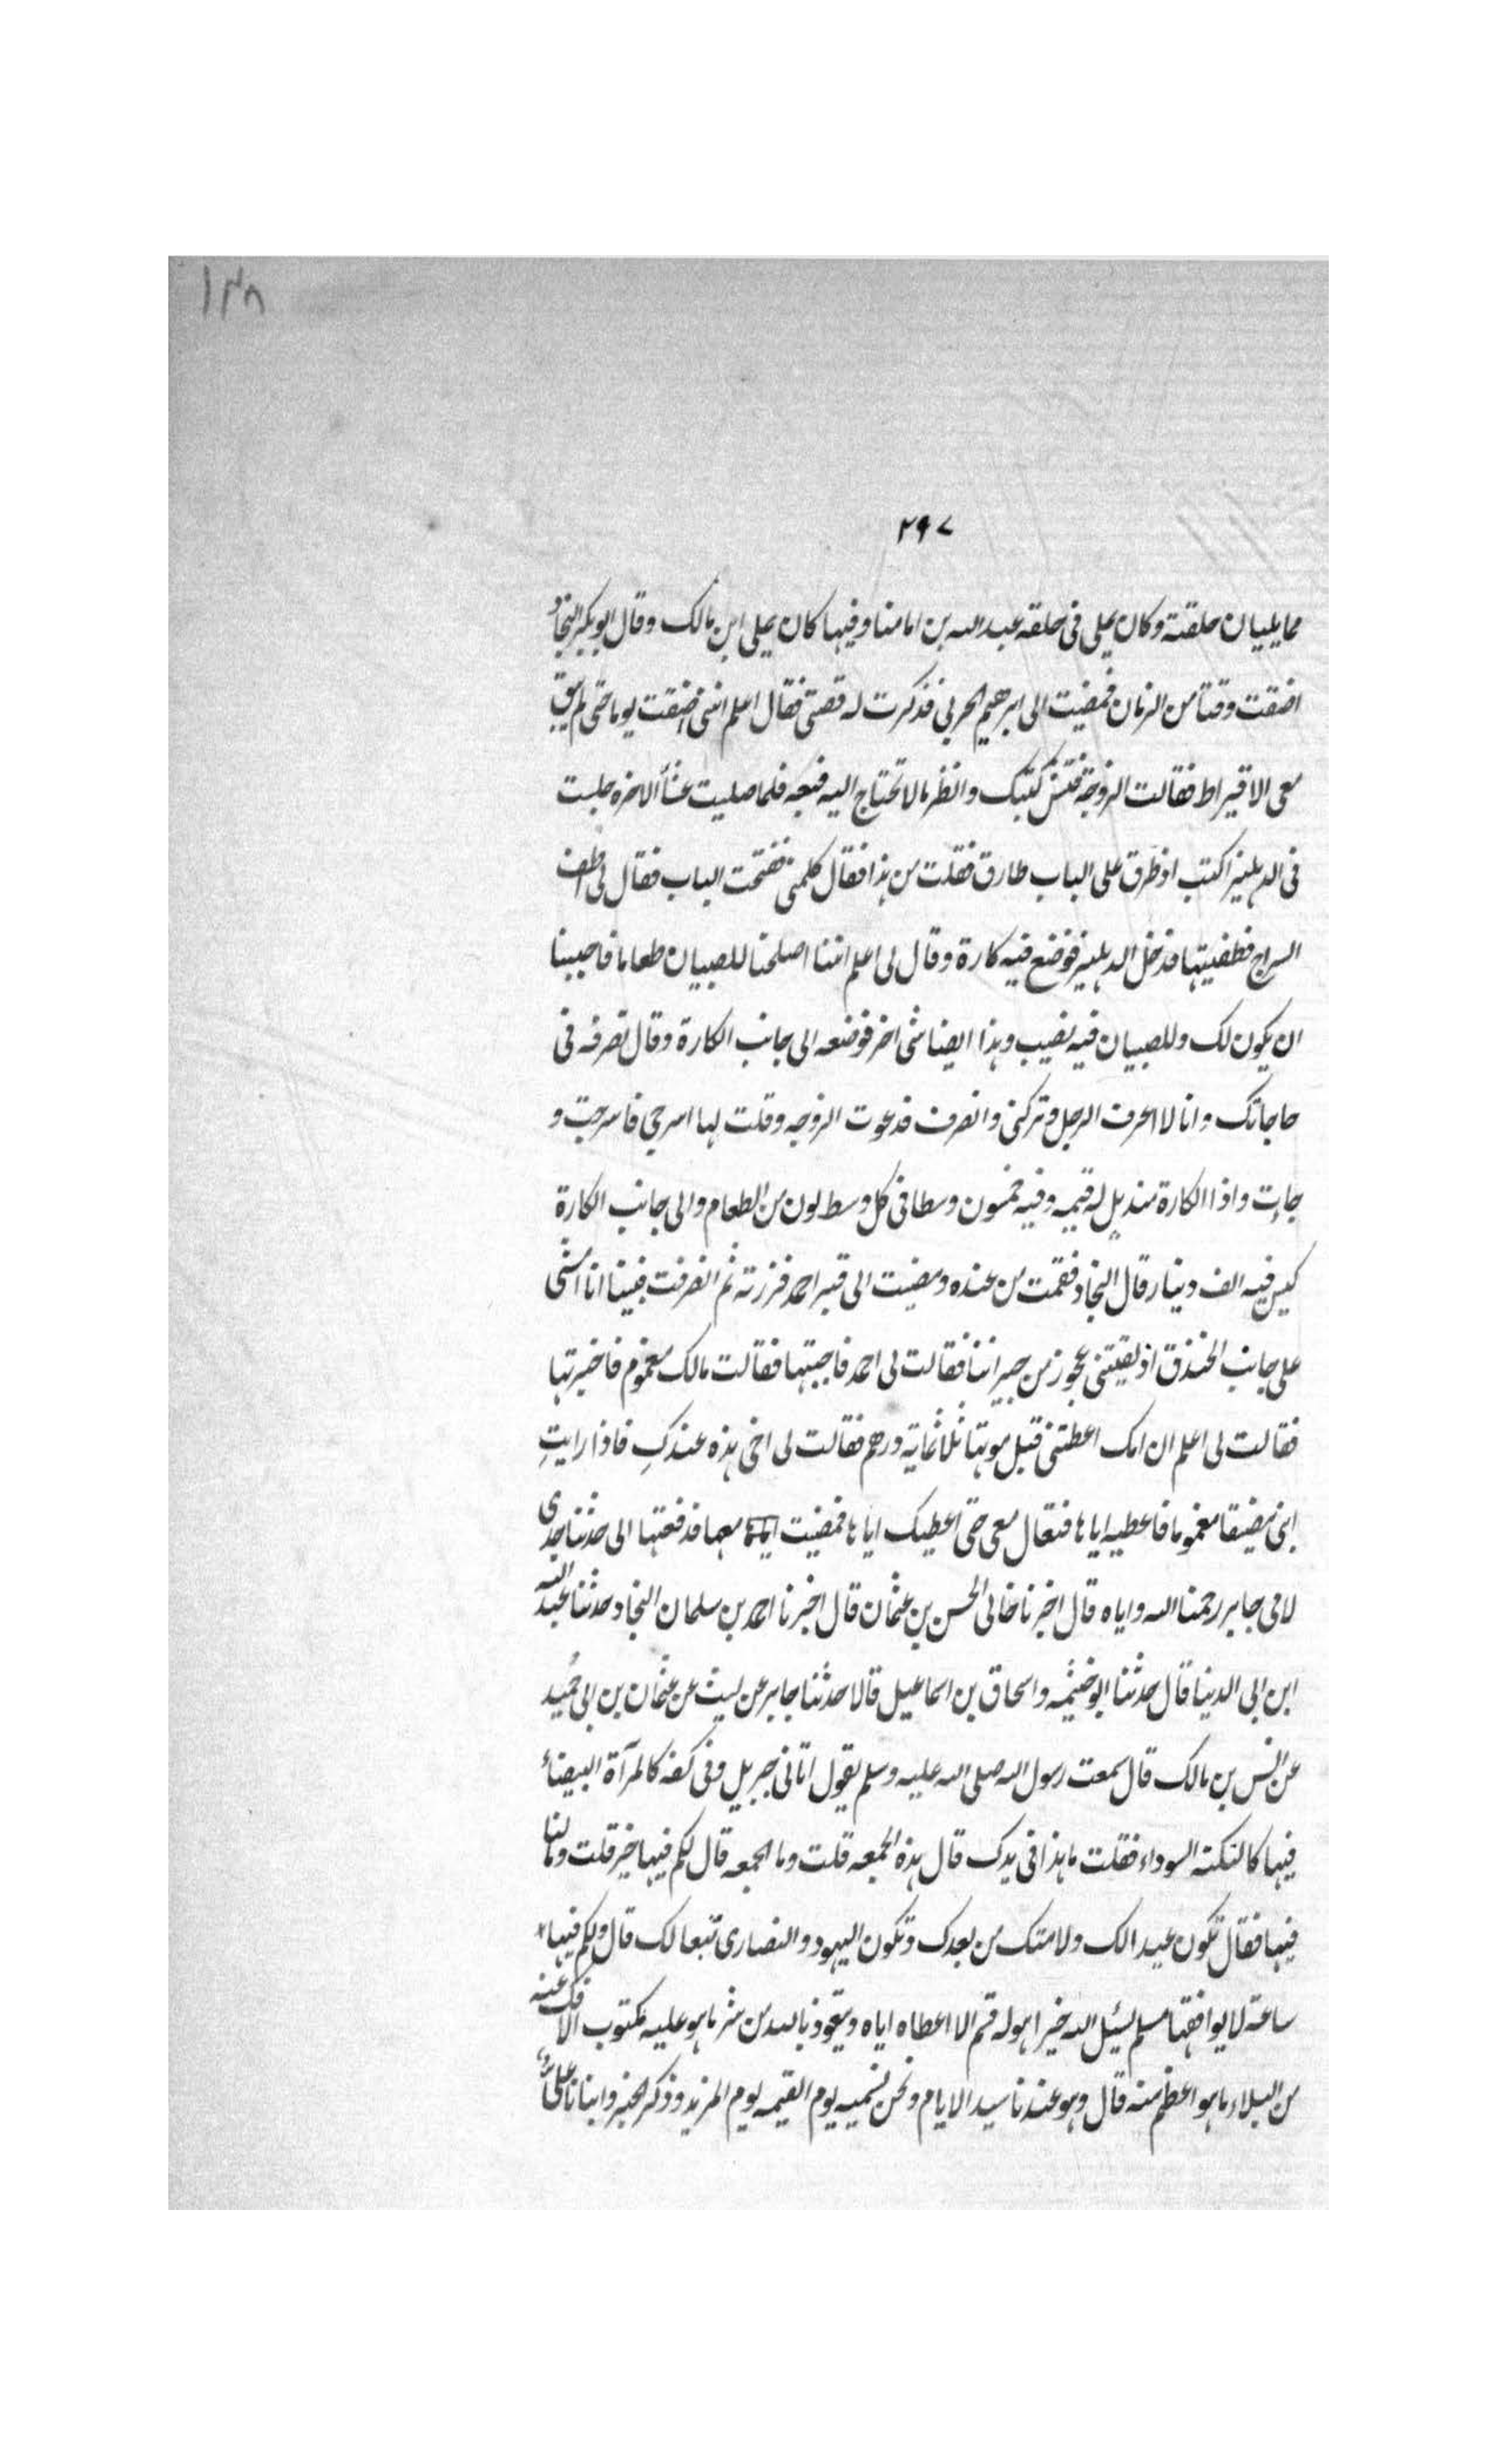 ١٣٨
٢٩٧
مما يليان حلقته وكان يملى فى حلقه عبد الله بن امامنا وفيها كان يملى ابن مالك وقال ابوبكر النجاد
اضقت وقتا من الزمان فمضيت الى ابرهيم الحربى فذكرت له قصتى فقال اعلم اننى اضقت يوما حتى لم يبق
معى الا قيراط فقالت الزوجة فتش كتبك وانظر مالا تحتاج اليه فبعه فلما صليت عشأ الاخره جلست
فى الدهليز اكتب اذ طرق على الباب طارق فقلت من هذا فقال كلمنى ففتحت الباب فقال لى اطف
السراج فطفيتها فدخل الدهليز فوضع فيه كارة وقال لى اعلم اننا اصلحنا للصبيان طعاما فاحببنا
ان يكون لك وللصبيان فيه نصيب وهذا ايضا شى اخر فوضعه الى جانب الكارة وقال تصرفه فى
حاجاتك وانا لا اعرف الرجل وتركنى وانصرف فدعوت الزوجه وقلت لها اسرجى فاسرجت و
جاءت واذا الكارة منديل له قيمه وفيه خمسون وسطا فى كل وسط لون من الطعام والى جانب الكارة
كيس فيه الف دينار قال النجاد فقمت من عنده ومضيت الى قبر احمد فزرته ثم انصرفت فبينا انا امشى
على جانب الخندق اذ لقيتنى عجوز من جيراننا فقالت لى احمد فاجبتها فقالت مالك مغموم فاخبرتها
فقالت لى اعلم ان امك اعطتنى قبل موتها ثلاثماية درهم فقالت لى اخى هذه عندكِ فاذا رايتِ
ابنى مضيقا مغموما فاعطيه اياها فتعال معى حتى اعطيك اياها فمضيت معها فدفعتها الى حدثنا جدى
لامى جابر رحمنا الله واياه قال اخبرنا خالى الحسن بن عثمان قال اخبرنا احمد بن سلمان النجاد حدثنا عبد الله
ابن ابى الدنيا قال حدثنا ابو خيثمه واسحاق بن اسماعيل قالا حدثنا جابر عن ليث عن عثمان بن ابى حميد
عن انس بن مالك قال سمعت رسول الله صلى الله عليه وسلم يقول اتانى جبريل وفى كفه كالمرآة البيضأ
فيها كالنكته السوداء فقلت ما هذا فى يدك قال هذه الجمعه قلت وما الجمعه قال لكم فيها خير قلت وما لنا
فيها فقال تكون عيدا لك ولامتك من بعدك وتكون اليهود والنصارى تبعا لك قال ولكم فيها
ساعة لا يوافقها مسلم يسئل الله خيرا هو له قسم الا اعطاه اياه ويتعوذ بالله من شر ما هو عليه مكتوب الا فك عنه
من البلاء ما هو اعظم منه قال وهو عندنا سيد الايام ونحن نسميه يوم القيمه يوم المزيد وذكر الخبر وانبانا على